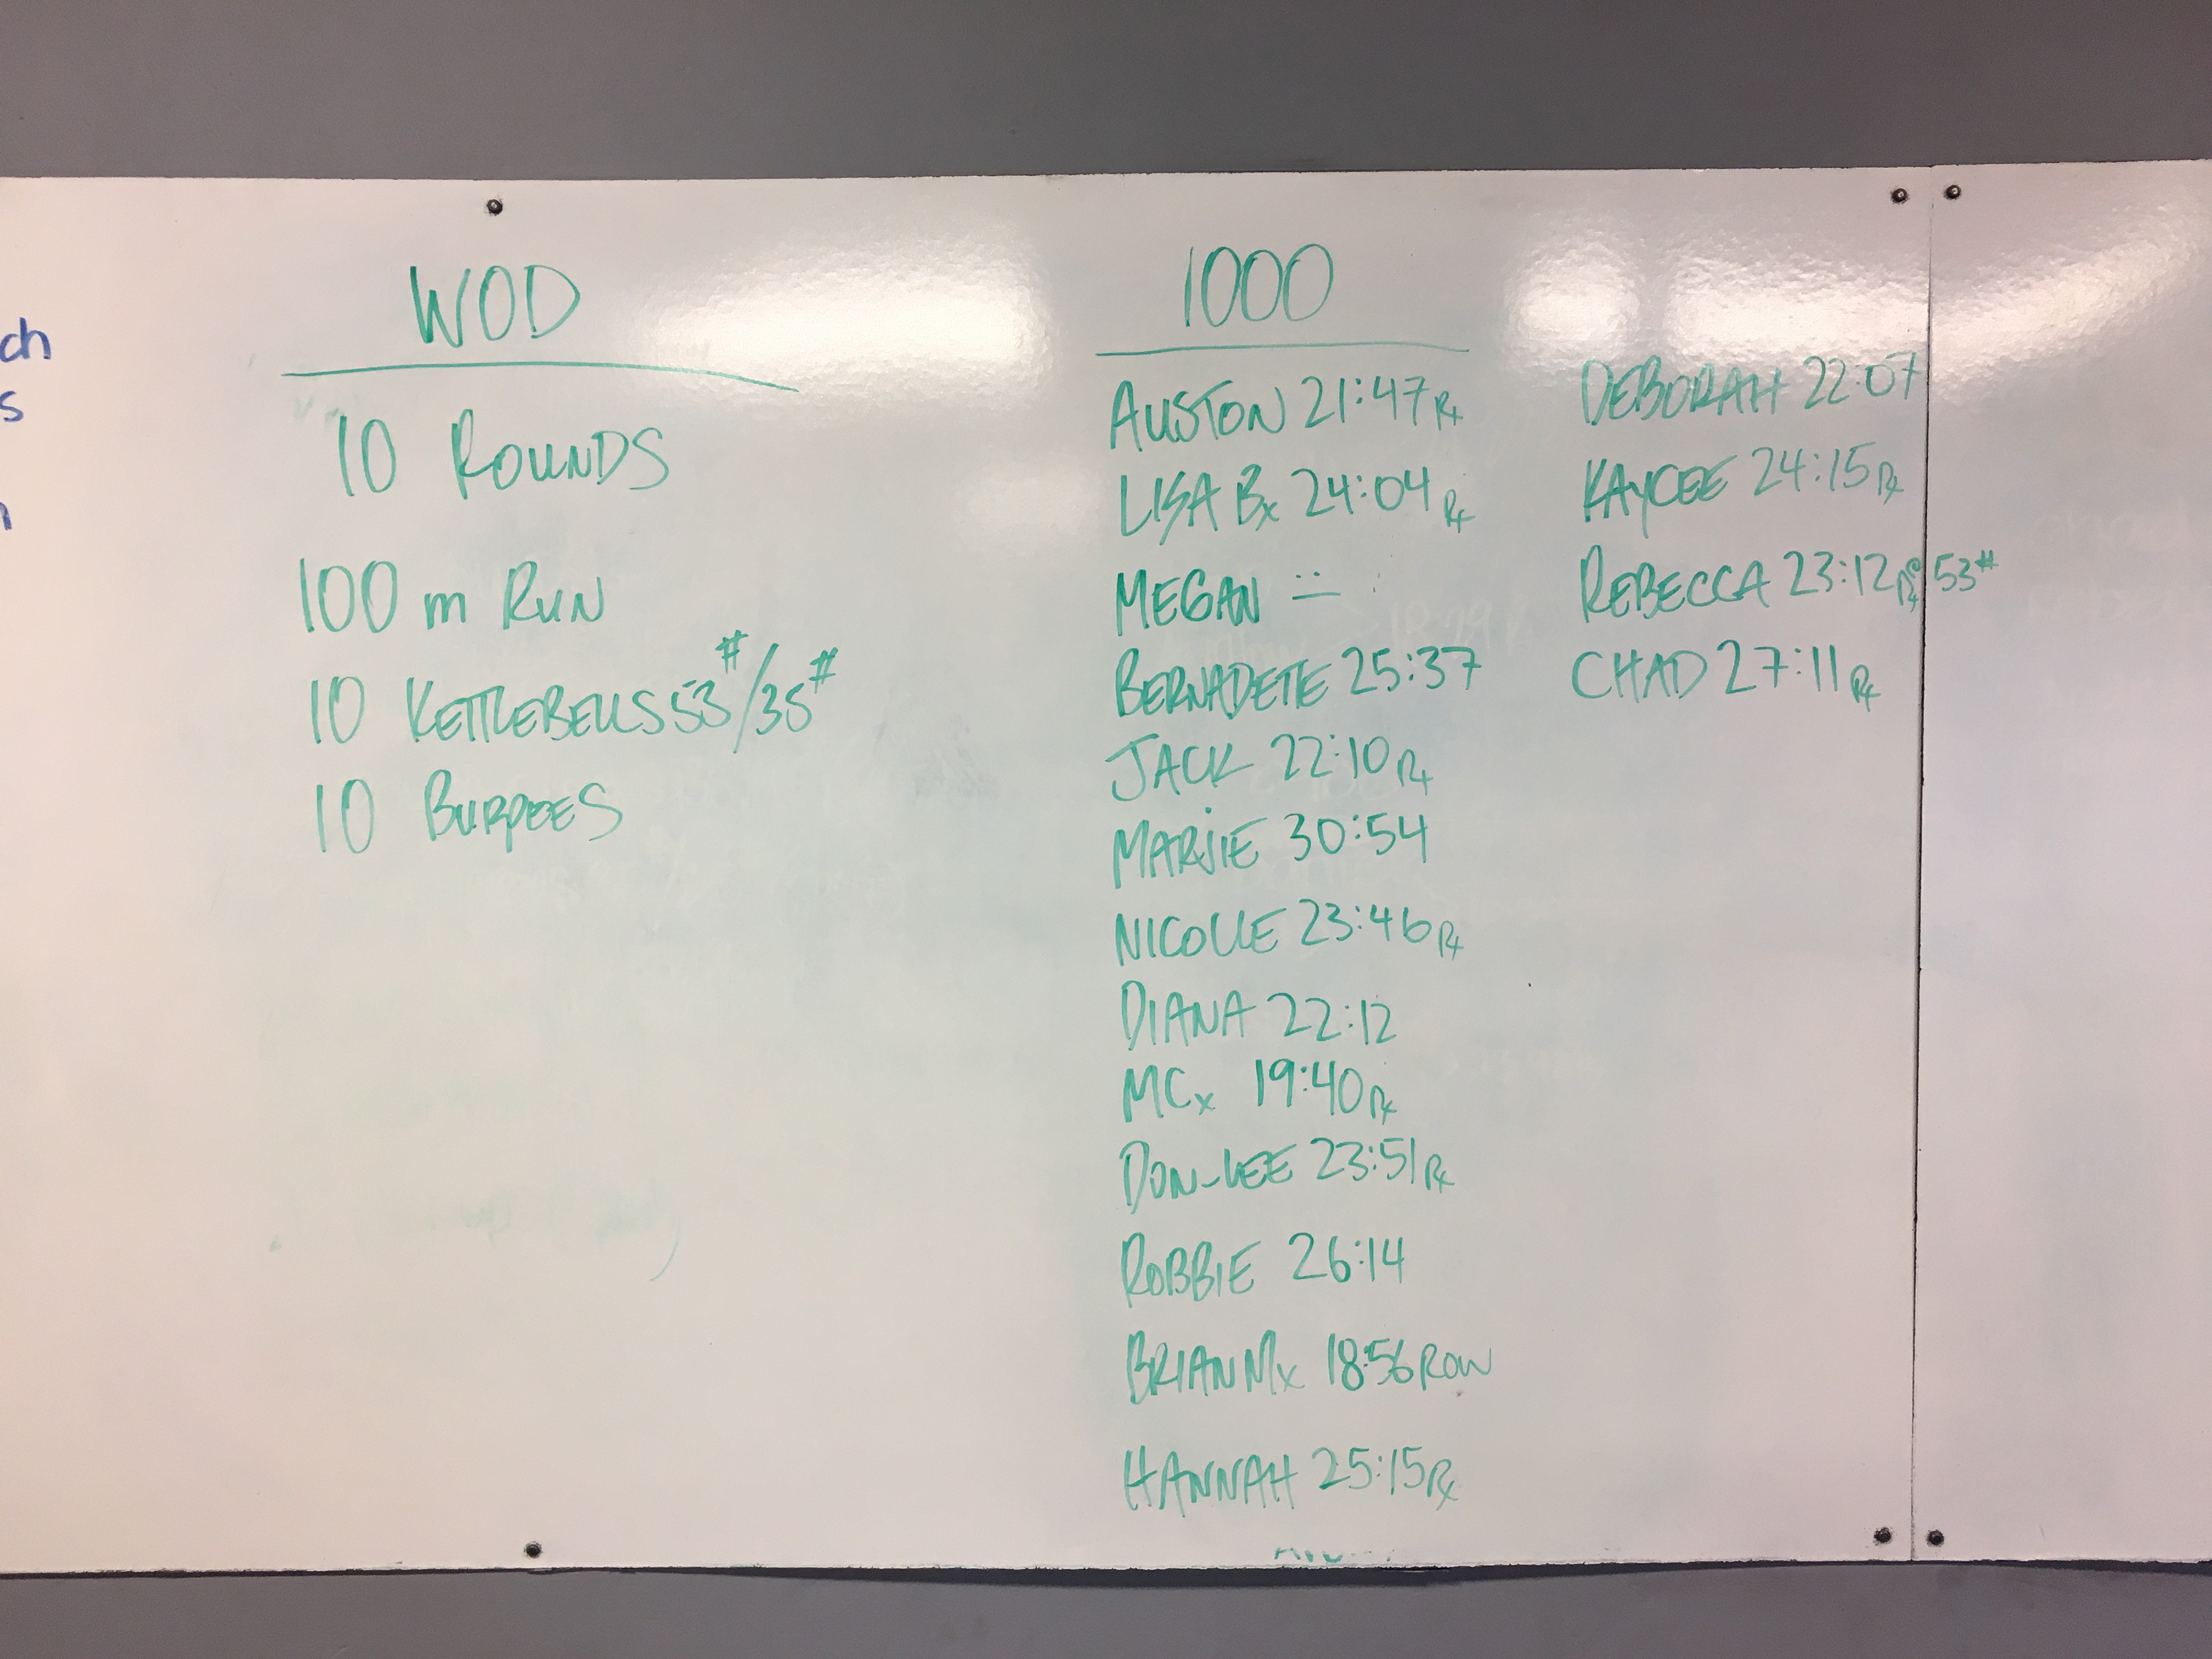 ch
s
WOD
10 ROUNDS
100 m RUN
10 KETTLEBELLS 53#/35#
10 BURPEES
1000
AUSTON 21:47 Rx
LISA Bx 24:04 Rx
MEGAN
BERNADETE 25:37
JACK 22:10 Rx
MARJIE 30:54
NICOLLE 23:46 Rx
DIANA 22:12
MCx 19:40 Rx
DON-LEE 23:51 Rx
ROBBIE 26:14
BRIAN Mx 18:56 ROW
HANNAH 25:15 Rx
DEBORAH 22:07
KAYCEE 24:15 Rx
REBECCA 23:12 Rx 53#
CHAD 27:11 Rx